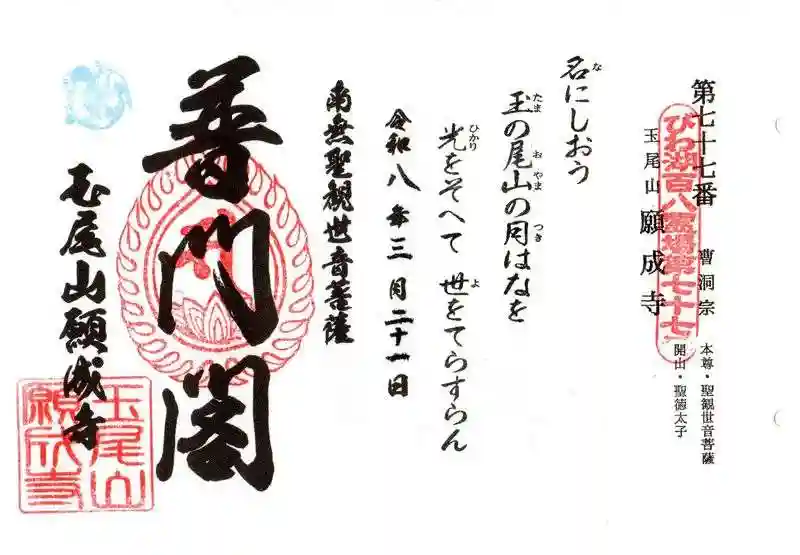 第七十七番
びわ湖百八霊場第七十七
玉尾山 願成寺
曹洞宗
本尊・聖観世音菩薩
開山・聖徳太子
名にしおう
な
玉の尾山の月はなを
たま お やま つき
光をそへて 世をてらすらん
ひかり よ
令和八年三月二十一日
南無聖観世音菩薩
普門閣
玉尾山願成寺
玉尾山
願成寺